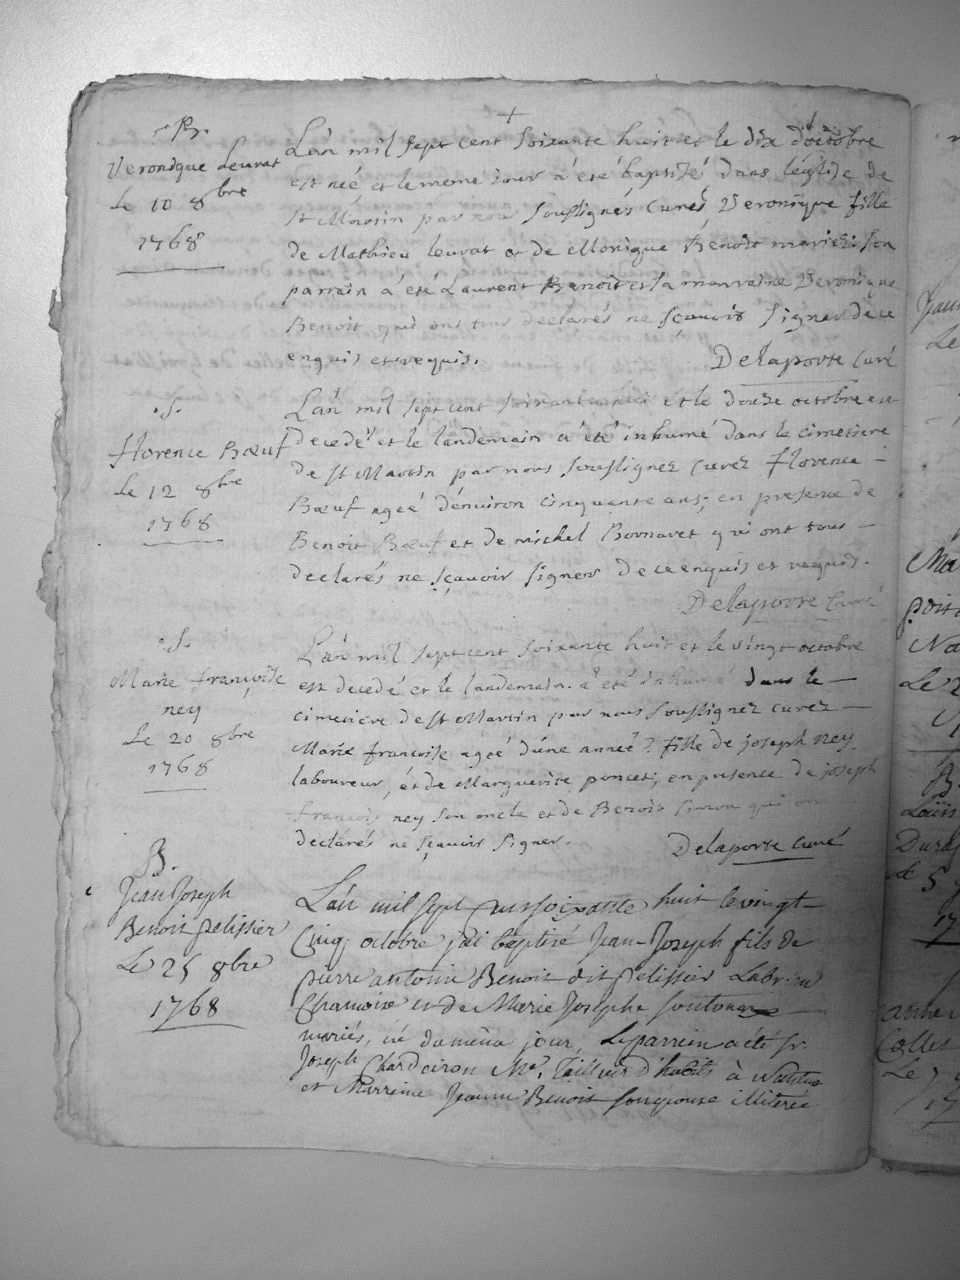 +
B.
Veronique Leurat
Le 10 8bre
1768
L'an mil sept cent soixante huit et le dix d'octobre
est née et le meme jour à été baptisée dans l'église de
St Martin par nous soussignés curés Veronique fille
de Mathieu leurat et de Monique Benoit mariés; son
parrain à été Laurent Benoit et la marraine Veronique
Benoit qui ont tous declarés ne sçauoir signer de ce
enquis et requis.
Delaporte curé
.S.
Florence Bœuf
Le 12 8bre
1768
L'an mil sept cent soixante huit et le douze octobre est
decedé et le landemain à été inhumé dans le cimetiere
de St Martin par nous soussignez curez Florence -
Bœuf ageé d'environ cinquante ans; en presence de
Benoit Bœuf et de michel Bonnavet qui ont tous -
declarés ne sçauoir signer de ce enquis et requis.
Delaporte Curé
.S.
Marie françoise
ney
Le 20 8bre
1768
L'an mil sept cent soixante huit et le vingt octobre
est decedé et le landemain à été inhumé dans le -
cimetiere de St Martin par nous soussignez curez -
Marie francoise ageé d'une anneé fille de joseph ney
laboureur, et de Marguerite poncet; en presence de joseph
francois ney son oncle et de Benoit simon qui on
declarés ne sçauoir signer.
Delaporte curé
B.
Jean Joseph
Benoit pelissier
Le 25 8bre
1768
L'an mil sept cent soixante huit le vingt
Cinq octobre j'ai baptisé Jean-Joseph fils de
pierre antoine Benoit dit Pelissier
et de Marie Josephe
mariés, né du même jour, Le parrein a été Sr.
Joseph Me. Tailleur d'habits à
et Marreine Jeanne Benoit son epouse illiterée